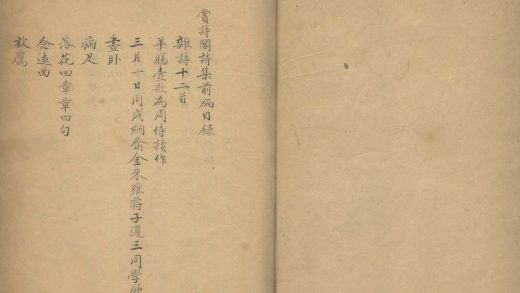 賞詩閣詩集前編目錄
雜詩十二首
羊腸壺歌為周侍讀作
三月一日同成炯齋金朱雍蔣子遵三同學
晝卧
病足
落花四章章四句
念遠曲
放鷹